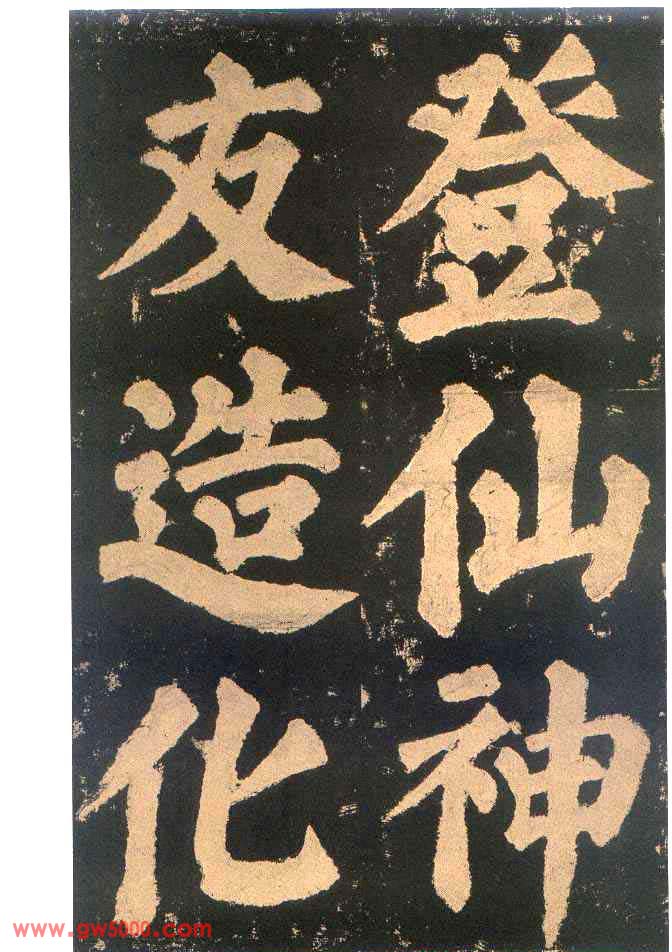 登仙神
友造化
www.gw5000.com